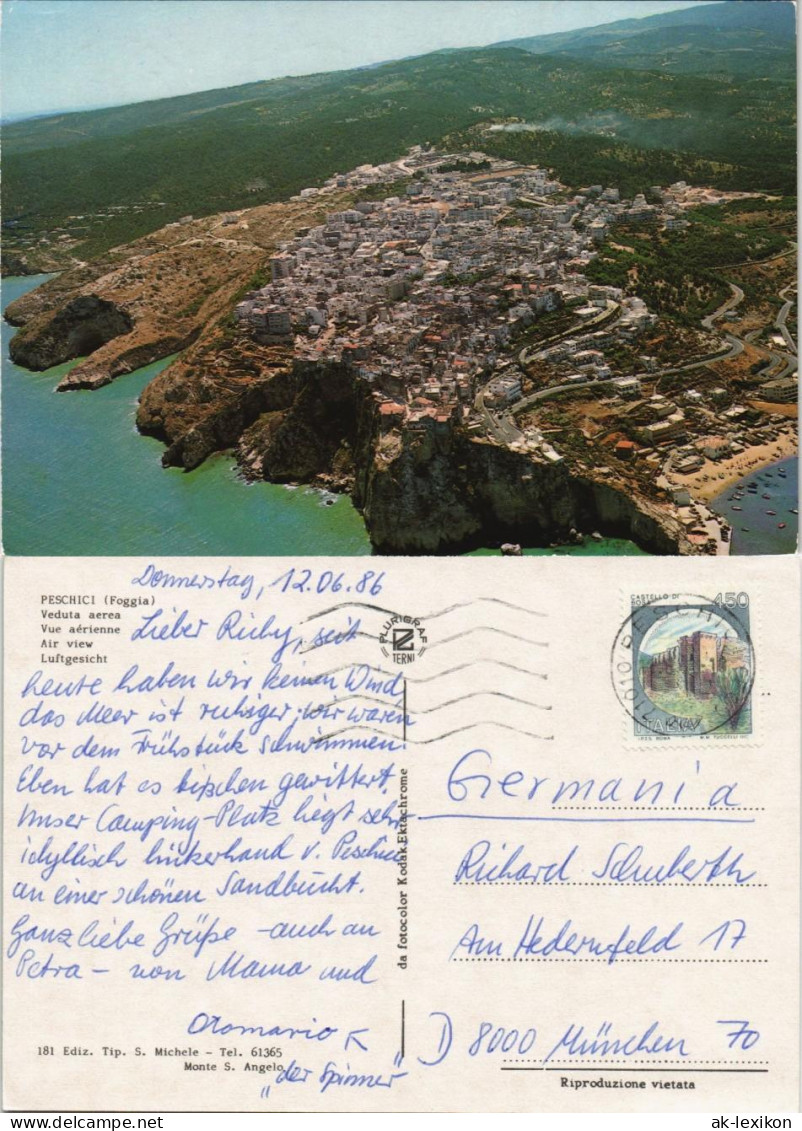 PESCHICI (Foggia)
Veduta aerea
Vue aérienne
Air view
Luftgesicht
Donnerstag, 12.06.86
Lieber Richy, seit
heute haben wir keinen Wind
das Meer ist ruhiger, wir waren
vor dem Frühstück schwimmen.
Eben hat es bißchen gewittert.
Unser Camping-Platz liegt sehr
idyllisch linkerhand v. Peschici
an einer schönen Sandbucht.
Ganz liebe Grüße - auch an
Petra - von Mama und
Otomario
"der Spinner"
181 Ediz. Tip. S. Michele - Tel. 61365
Monte S. Angelo
PLURIGRAF
TERNI
da fotocolor Kodak Ektachrome
CASTELLO DI
450
ITALIA
I.P.Z.S. ROMA
71010 PESCHICI
Germania
Richard Schuberth
Am Hedernfeld 17
D 8000 München 70
Riproduzione vietata
ak-lexikon